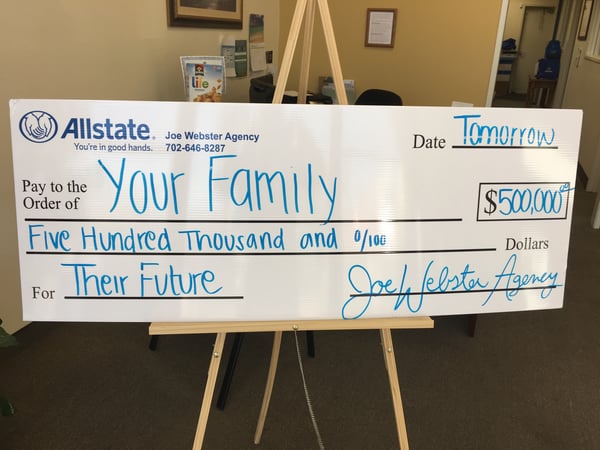 life
Allstate®
You're in good hands.
Joe Webster Agency
702-646-8287
Date Tomorrow
Pay to the
Order of Your Family
$500,000
Five Hundred Thousand and 0/100 Dollars
For Their Future
Joe Webster Agency